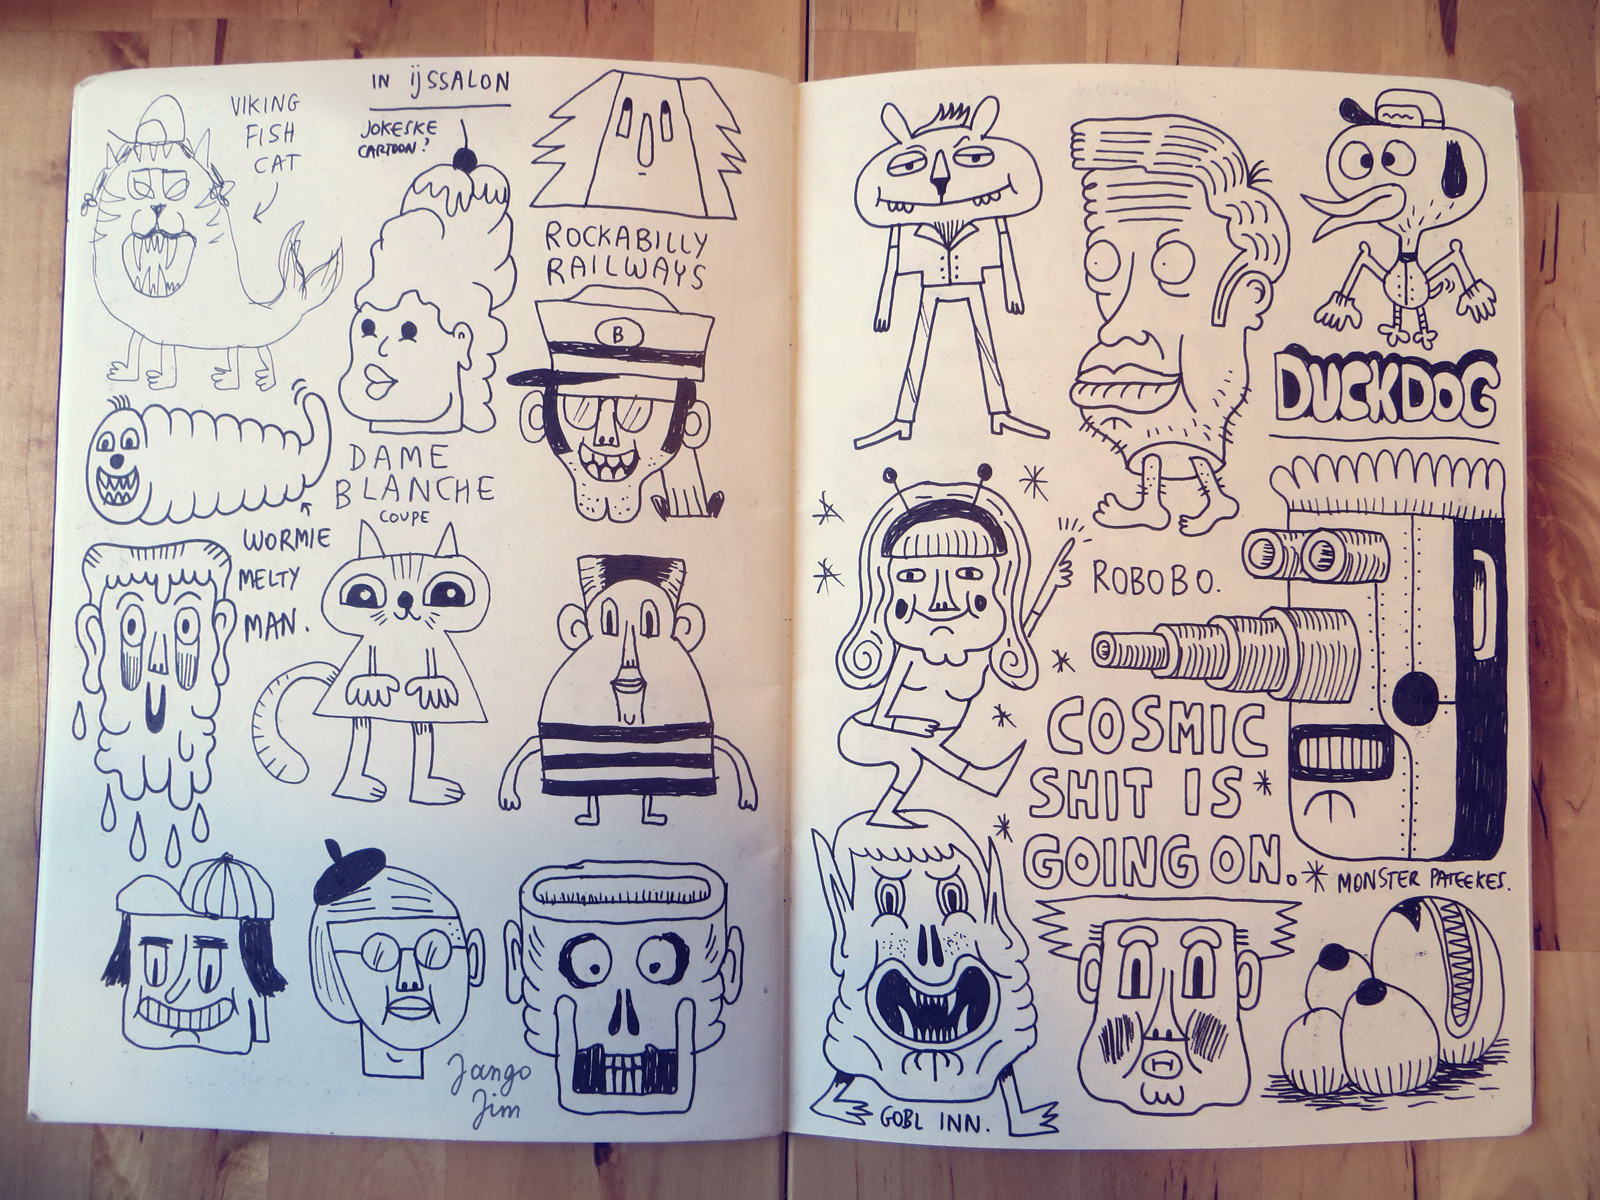 VIKING
FISH
CAT
IN IJSSALON
JOKESKE
CARTOON?
ROCKABILLY
RAILWAYS
B
DAME
BLANCHE
COUPE
WORMIE
MELTY
MAN.
Jango
Jim
DUCKDOG
ROBOBO.
COSMIC
SHIT IS
GOING ON.
MONSTER PATEEKES.
GOBL INN.